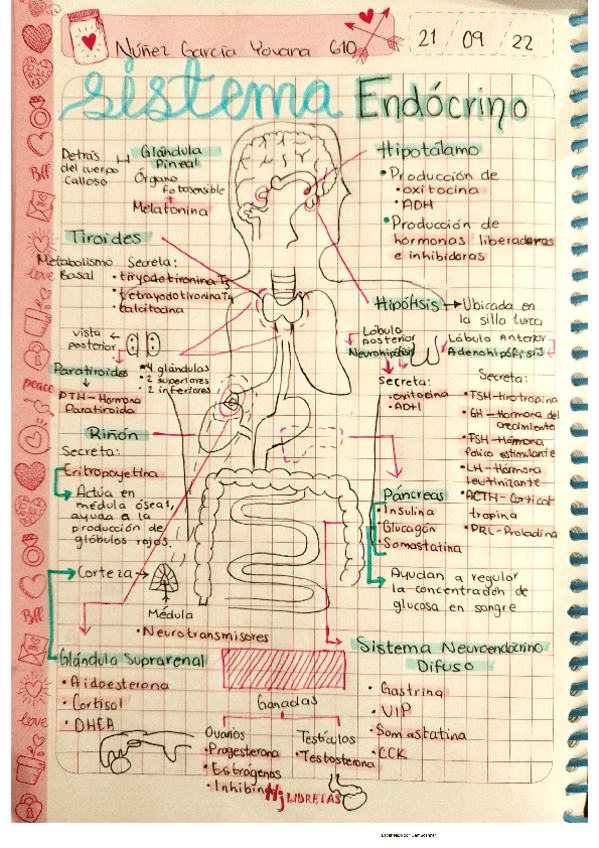 Núñez García Yovana 610
21 / 09 / 22
sistema Endócrino
Detrás
del cuerpo
Calloso
Glándula
Pineal
Órgano
fotosensible
Melatonina
Hipotálamo
• Producción de
• oxitocina
• ADH
• Producción de
hormonas liberadoras
e inhibidoras
Tiroides
Metabolismo
Basal
Secreta:
• tiryodotironina T3
• tetrayodotironina T4
• calcitocina
vista
posterior
Paratiroides
• 4 glándulas
• 2 superiores
• 2 inferiores
PTH - Hormona
Paratiroida
Hipófisis → Ubicada en
la silla turca
Lóbulo
posterior
Neurohipófisis
Lóbulo Anterior
Adenohipófisis
Secreta:
• oxitocina
• ADH
Secreta:
• TSH-tirotropina
• GH-Hormona del
crecimiento
• FSH-Hormona
folico estimulante
• LH-Hormona
leutinizante
• ACTH-Cortical
tropina
• PRL-Prolactina
Riñón
Secreta:
Eritropoyetina
Actúa en
médula ósea,
ayuda a la
producción de
glóbulos rojos.
Páncreas
• Insulina
• Glucagón
• Somastatina
Ayudan a regular
la concentración de
glucosa en sangre
Corteza →
Médula
• Neurotransmisores
Glándula Suprarenal
• Aldoesterona
• Cortisol
• DHEA
Sistema Neuroendócrino
Difuso
• Gastrina
• VIP
• Somastatina
• CCK
Gónadas
Ovarios
• Progesterona
• Estrógenos
• Inhibina
Testículos
• Testosterona
Hj LIBRETAS
BFF
love
peace
BFF
love